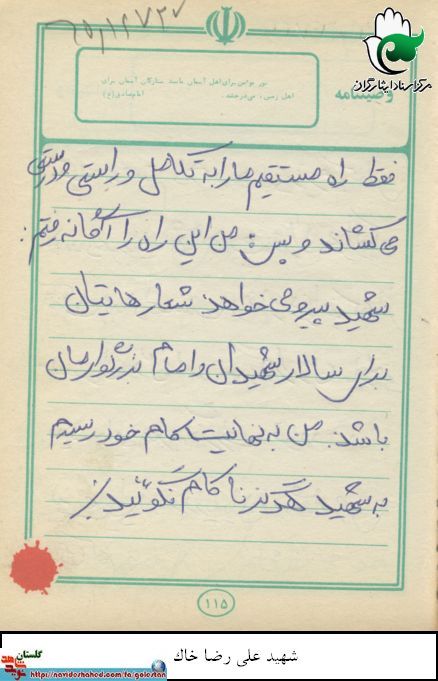 ۶۵/۱۶۷۳۷
مرکز اسناد ایثارگران
وصیتنامه
نور مؤمن برای اهل آسمان مانند ستارگان آسمان برای
اهل زمین، می‌درخشد. امام صادق (ع)
فقط راه مستقیم ما را به تکامل و راستی و درستی
می کشاند و بس: من این راه را آگاهانه رفتم:
شهید پیرو می خواهد شعارهایتان
برای سالار شهیدان و امام بزرگوارمان
باشد. من به نهایت کام خود رسیدم
به شهید هرگز ناکام نگوئید
۱۱۵
شهید علی رضا خاك
گلستان
نوید شاهد
https://navideshahed.com/fa/golestan